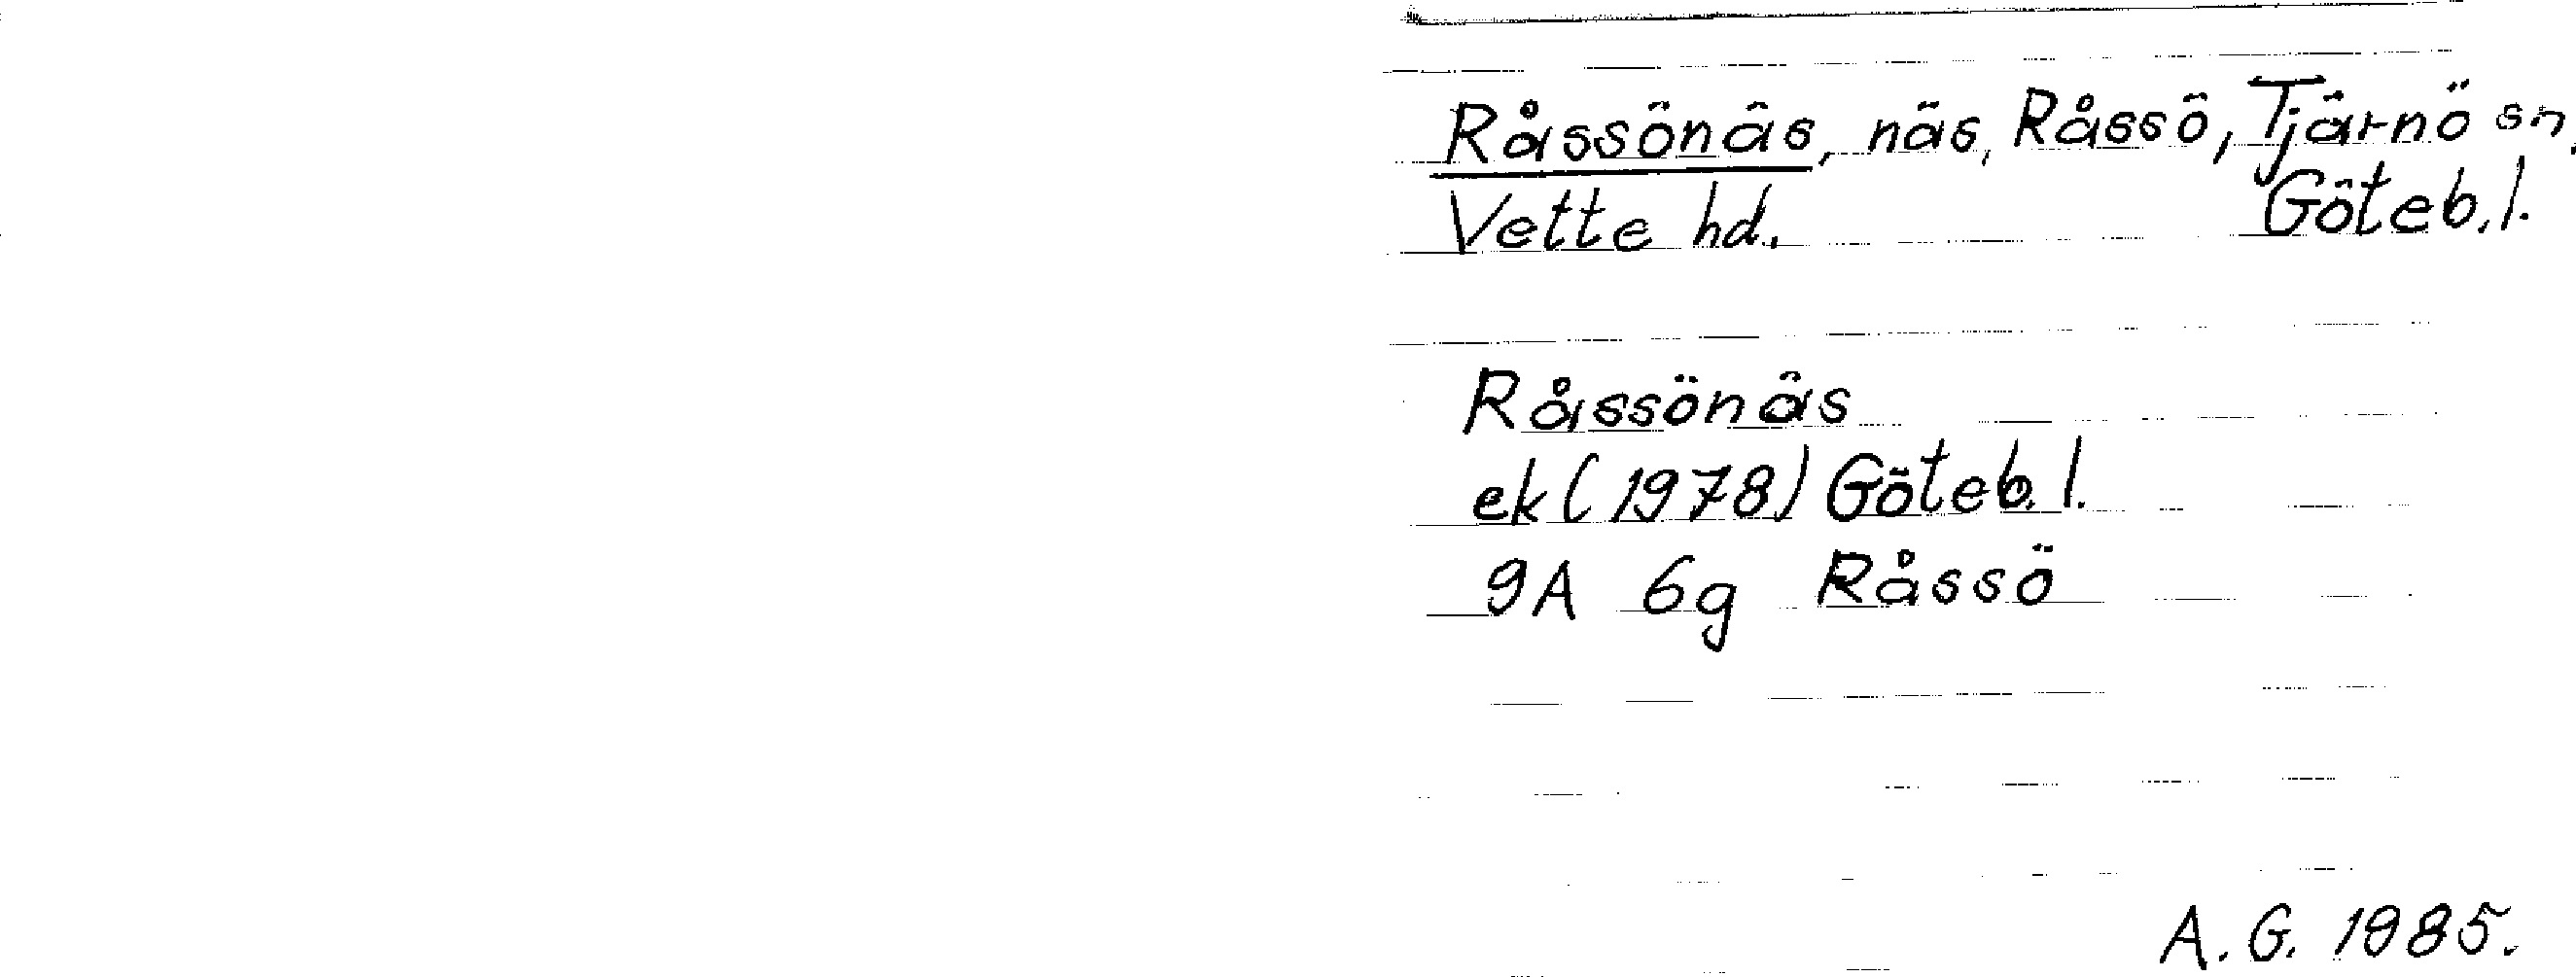 Råssönäs, näs, Råssö, Tjärnö sn,
Vette hd. Göteb. l.
Råssönäs
ek (1978) Göteb. l.
9A 6g Råssö
A. G. 1985.